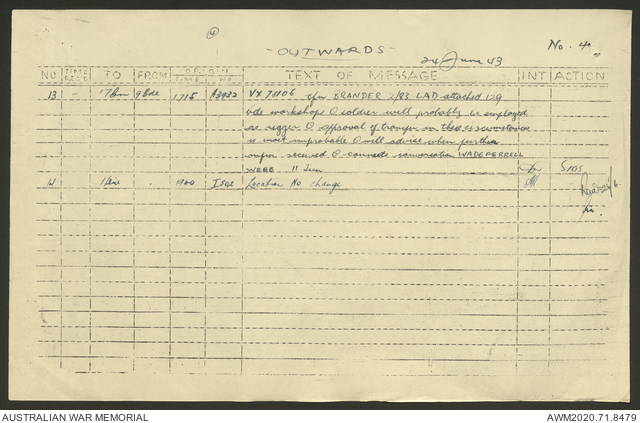 4
- OUTWARDS -
24 June 43
No. 4
NO TIME REC'D TO FROM ORIGIN TIME NO. TEXT OF MESSAGE INT ACTION
13 - 17 Bn 9 Bde 1715 VX 78106 cfn BRANDER 2/83 LAD attached 129
bde workshops O soldier will probably be employed
as rigger O approval of transfer in
is most improbable O will advise when further
infm received O WADE FERRELL
WEBB 11 Jun SIGS
14 1900 Location No change
AUSTRALIAN WAR MEMORIAL
AWM2020.71.8479